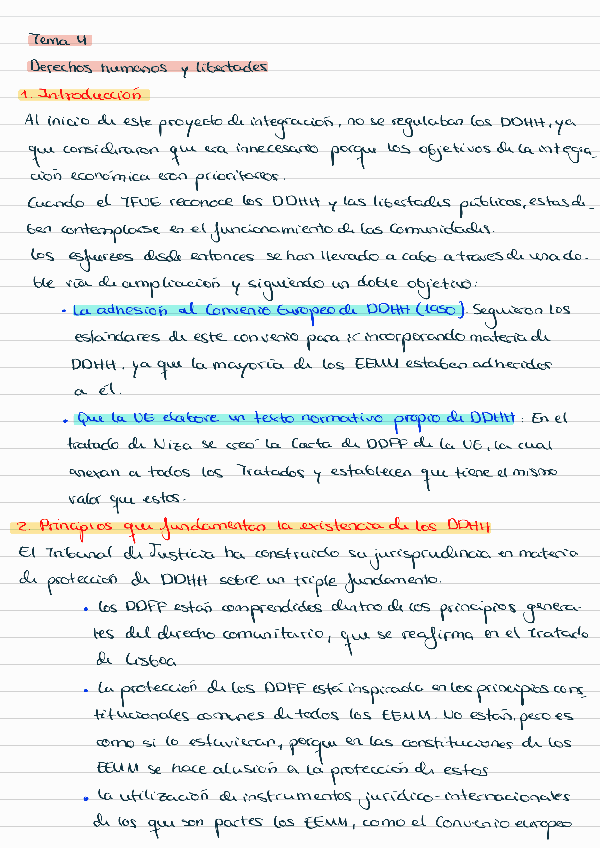 Tema 4
Derechos humanos y libertades
1. Introducción
Al inicio de este proyecto de integración, no se regulaban los DDHH, ya
que consideraron que era innecesario porque los objetivos de la integra-
ción económica eran prioritarios.
Cuando el TFUE reconoce los DDHH y las libertades públicas, estas de-
ben contemplarse en el funcionamiento de las Comunidades.
Los esfuerzos desde entonces se han llevado a cabo a través de una do-
ble vía de ampliación y siguiendo un doble objetivo:
· La adhesión al Convenio Europeo de DDHH (1950). Seguieron los
estándares de este convenio para ir incorporando materia de
DDHH, ya que la mayoría de los EEMM estaban adheridos
a él.
· Que la UE elabore un texto normativo propio de DDHH: En el
tratado de Niza se creó la Carta de DDFF de la UE, la cual
anexan a todos los Tratados y establecen que tiene el mismo
valor que estos.
2. Principios que fundamentan la existencia de los DDHH
El Tribunal de Justicia ha construido su jurisprudencia en materia
de protección de DDHH sobre un triple fundamento.
· Los DDFF están comprendidos dentro de los principios genera-
les del derecho comunitario, que se reafirma en el Tratado
de Lisboa
· La protección de los DDFF está inspirada en los principios cons
titucionales comunes de todos los EEMM. No están, pero es
como si lo estuvieran, porque en las constituciones de los
EEMM se hace alusión a la protección de estos
· La utilización de instrumentos jurídico-internacionales
de los que son partes los EEMM, como el Convenio europeo